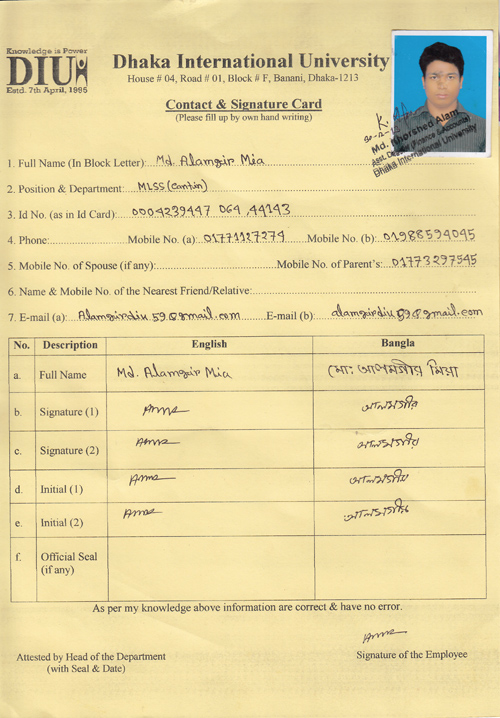 Knowledge is Power
DIU
Estd. 7th April, 1995
Dhaka International University
House # 04, Road # 01, Block # F, Banani, Dhaka-1213
Contact & Signature Card
(Please fill up by own hand writing)
Md. Khorshed Alam
Asst. Director (Finance & Accounts)
Dhaka International University
1. Full Name (In Block Letter): Md. Alamgir Mia
2. Position & Department: MLSS (Cantin)
3. Id No. (as in Id Card): 0004239447 064,44143
4. Phone: Mobile No. (a): 01771127274 Mobile No. (b): 01988594045
5. Mobile No. of Spouse (if any): Mobile No. of Parent's: 01773297545
6. Name & Mobile No. of the Nearest Friend/Relative:
7. E-mail (a): Alamgirdiu59@gmail.com E-mail (b) alamgirdiu59@gmail.com
No. Description English Bangla
a. Full Name Md. Alamgir Mia মো: আলমগীর মিয়া
b. Signature (1) আলমগীর
c. Signature (2) আলমগীর
d. Initial (1) আলমগীর
e. Initial (2) আলমগীর
f. Official Seal
(if any)
As per my knowledge above information are correct & have no error.
Attested by Head of the Department
(with Seal & Date)
Signature of the Employee